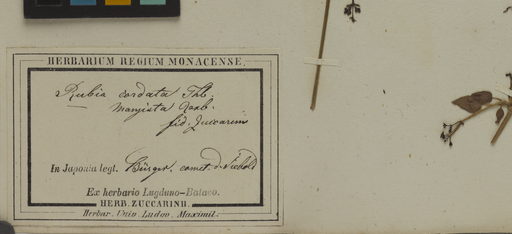 HERBARIUM REGIUM MONACENSE.
Rubia cordata Thb.
Munjista Roxb.
fid. Zuccarini
In Japonia legt. Bürger, comet. d. Siebold
Ex herbario Lugduno-Batavo.
HERB. ZUCCARINII.
Herbar. Univ. Ludov. Maximil.